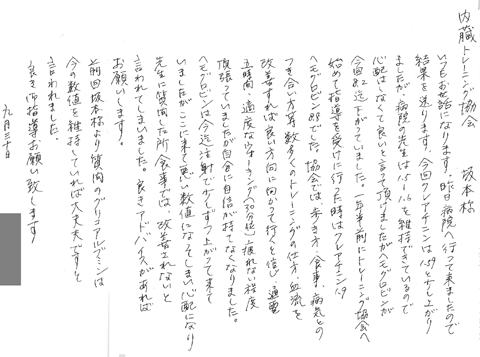 内臓トレーニング協会　坂本様
いつもお世話になります。昨日病院へ行って来ましたので
結果を送ります。今回クレアチニンは1.59と少し上がり
ましたが、病院の先生は1.5〜1.6を維持できているので
心配はしなくて良いと言って頂けましたがヘモグロビンが
今回8.2迄下がっていました。一年半前にトレーニング協会へ
始めて指導を受けに行った時はクレアチニン1.9
ヘモグロビン8.8でした。協会では、歩き方、食事、病気との
つき合い方等数多くのトレーニングの仕方、血流を
改善すれば良い方向に向かって行くと信じ、通電
五時間・適度なウォーキング(30分位)疲れない程度
頑張っていましたが自分に自信が持てなくなりました。
ヘモグロビンは今迄注射で少しずつ上がって来て
いましたがここに来て悪い数値になってしまい心配になり
先生に質問した所、食事では、改善されないと
言われてしまいました。良きアドバイスがあれば
お願いします。
前回坂本様より質問のグリコアルブミンは
今の数値を維持していれば大丈夫ですと
言われました
良き御指導お願い致します
九月二十日